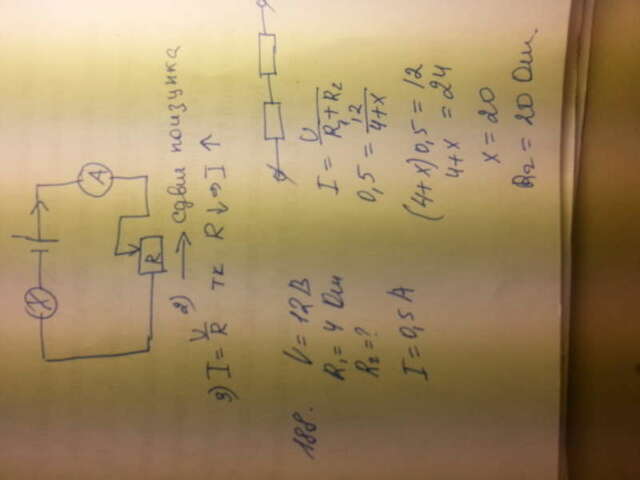 A
R
2) → сдвиг ползунка
3) I = U/R тк R ↓ ⇒ I ↑
188.
U = 12 В
R₁ = 4 Ом
R₂ = ?
I = 0,5 А
I = U/(R₁ + R₂)
0,5 = 12/(4+x)
(4+x)0,5 = 12
4+x = 24
x = 20
R₂ = 20 Ом.